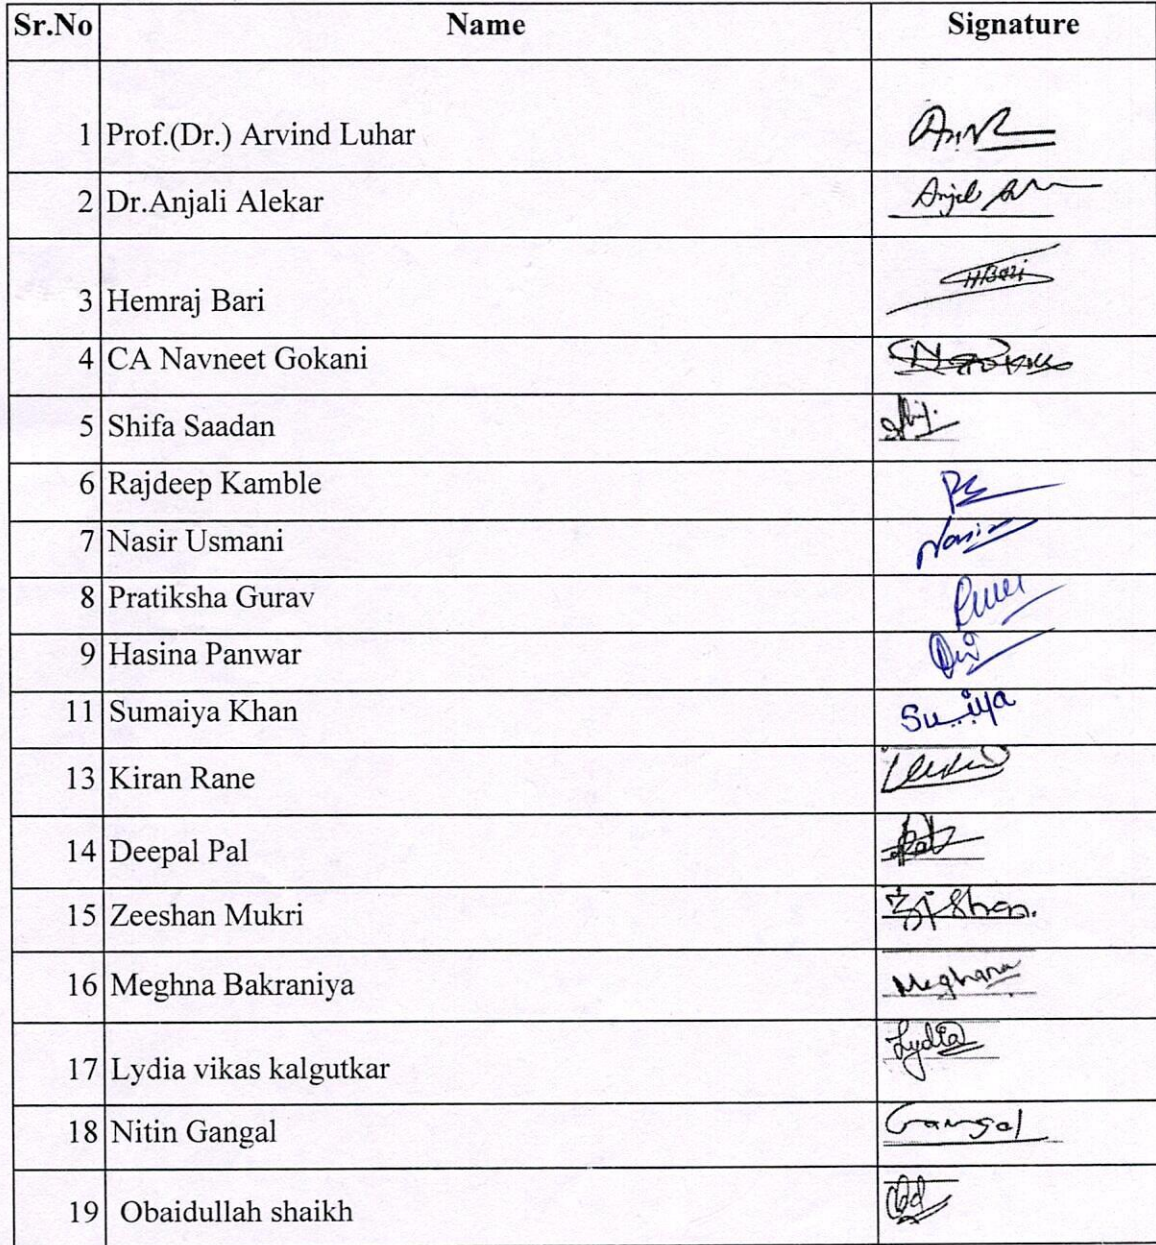 Sr.No Name Signature
1 Prof.(Dr.) Arvind Luhar
2 Dr.Anjali Alekar Anjali
3 Hemraj Bari HBari
4 CA Navneet Gokani
5 Shifa Saadan
6 Rajdeep Kamble
7 Nasir Usmani Nasir
8 Pratiksha Gurav
9 Hasina Panwar
11 Sumaiya Khan
13 Kiran Rane
14 Deepal Pal
15 Zeeshan Mukri
16 Meghna Bakraniya Meghana
17 Lydia vikas kalgutkar Lydia
18 Nitin Gangal Gangal
19 Obaidullah shaikh